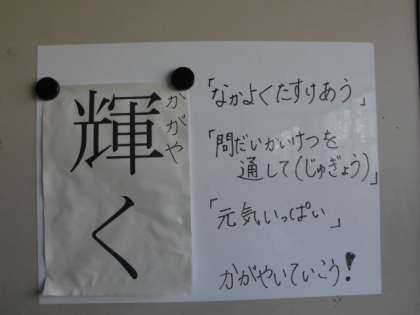 輝く
かがや
「なかよくたすけあう」
「問だいかいけつを
通して(じゅぎょう)」
「元気いっぱい」
かがやいていこう!